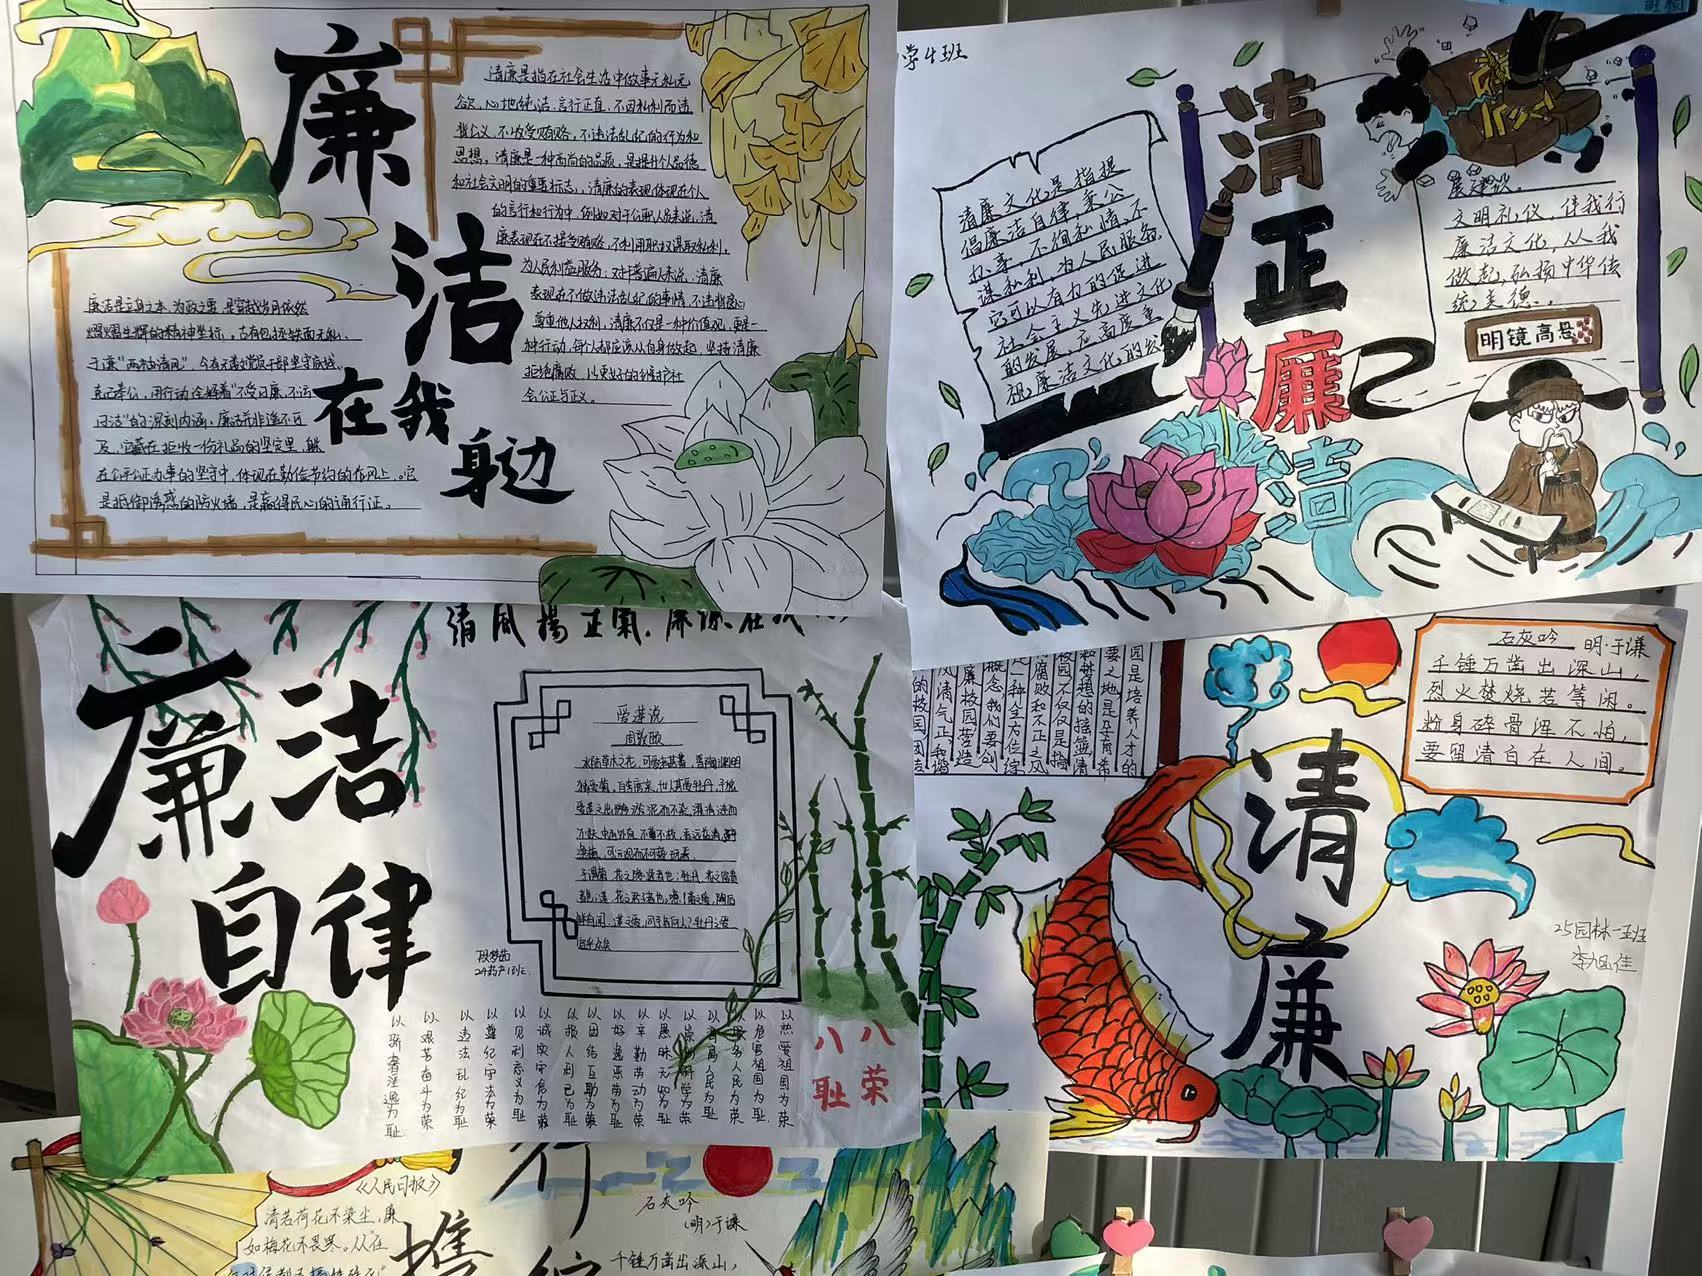 廉
洁
在我
身边
清廉是指在社会生活中做事无私无
欲,心地纯洁,言行正直,不因私利而违
背公义,不收受贿赂,不违法乱纪的作为和
思想。清廉是一种高尚的品质,是提升个人品德
和社会文明的重要标志,清廉的表现体现在个人
的言行和行为中,例如对于公职人员来说,清
廉表现在不接受贿赂,不利用职权谋取私利,
为人民利益服务;对于普通人来说,清廉
表现在不做违法乱纪的事情,不违背良心
尊重他人权利,清廉不仅是一种价值观,更是一
种行动,每个人都应该从自身做起,坚持清廉
拒绝腐败,以更好的维护社
会公正与正义。
廉洁是立身之本,为政之要,是穿越岁月依然
熠熠生辉的精神坐标。古有包拯铁面无私、
于谦“两袖清风”,今有无数党员干部坚守底线、
克己奉公,用行动诠释着“不受曰廉,不污
曰洁”的深刻内涵。廉洁并非遥不可
及,它藏在拒收一份礼品的坚定里,
在公平公正办事的坚守中,体现在勤俭节约的作风上。它
是抵御诱惑的防火墙,是赢得民心的通行证。
学4班
清
正
廉
洁
清廉文化是指提
倡廉洁自律,秉公
办事,不徇私情,不
谋私利,为人民服务
它可以有力的促进
社会主义先进文化
的发展,应高度重
视廉洁文化的发
展建设。
文明礼仪,伴我行
廉洁文化,从我
做起,弘扬中华传
统美德。
明镜高悬
清风扬正气,廉洁在我
廉洁
自律
爱莲说
周敦颐
水陆草木之花,可爱者甚蕃,晋陶渊明
独爱菊,自李唐来,世人甚爱牡丹,予独
爱莲之出淤泥而不染,濯清涟而
不妖,中通外直,不蔓不枝,香远益清,亭亭
净植,可远观而不可亵玩焉。
予谓菊,花之隐逸者也;牡丹,花之富贵
者也;莲,花之君子者也。噫!菊之爱,陶后
鲜有闻。莲之爱,同予者何人?牡丹之爱
宜乎众矣
24药产1班
八荣
八耻
以热爱祖国为荣
以危害祖国为耻
以服务人民为荣
以背离人民为耻
以崇尚科学为荣
以愚昧无知为耻
以辛勤劳动为荣
以好逸恶劳为耻
以团结互助为荣
以损人利己为耻
以诚实守信为荣
以见利忘义为耻
以遵纪守法为荣
以违法乱纪为耻
以艰苦奋斗为荣
以骄奢淫逸为耻
园是培养人才的
要之地是孕育希
和梦想的摇篮清
校园不仅仅是指
腐败和不正之风
是一种全方位综
概念我们要公
廉校园营造
风清气正,和谐
的校园
石灰吟 明·于谦
千锤万凿出深山,
烈火焚烧若等闲。
粉身碎骨浑不怕,
要留清白在人间。
清
廉
25园林一班
李旭佳
《人民日报》
清若荷花不染尘,廉
如梅花不畏寒。从“在
行
携
石灰吟
(明)于谦
千锤万凿出深山,